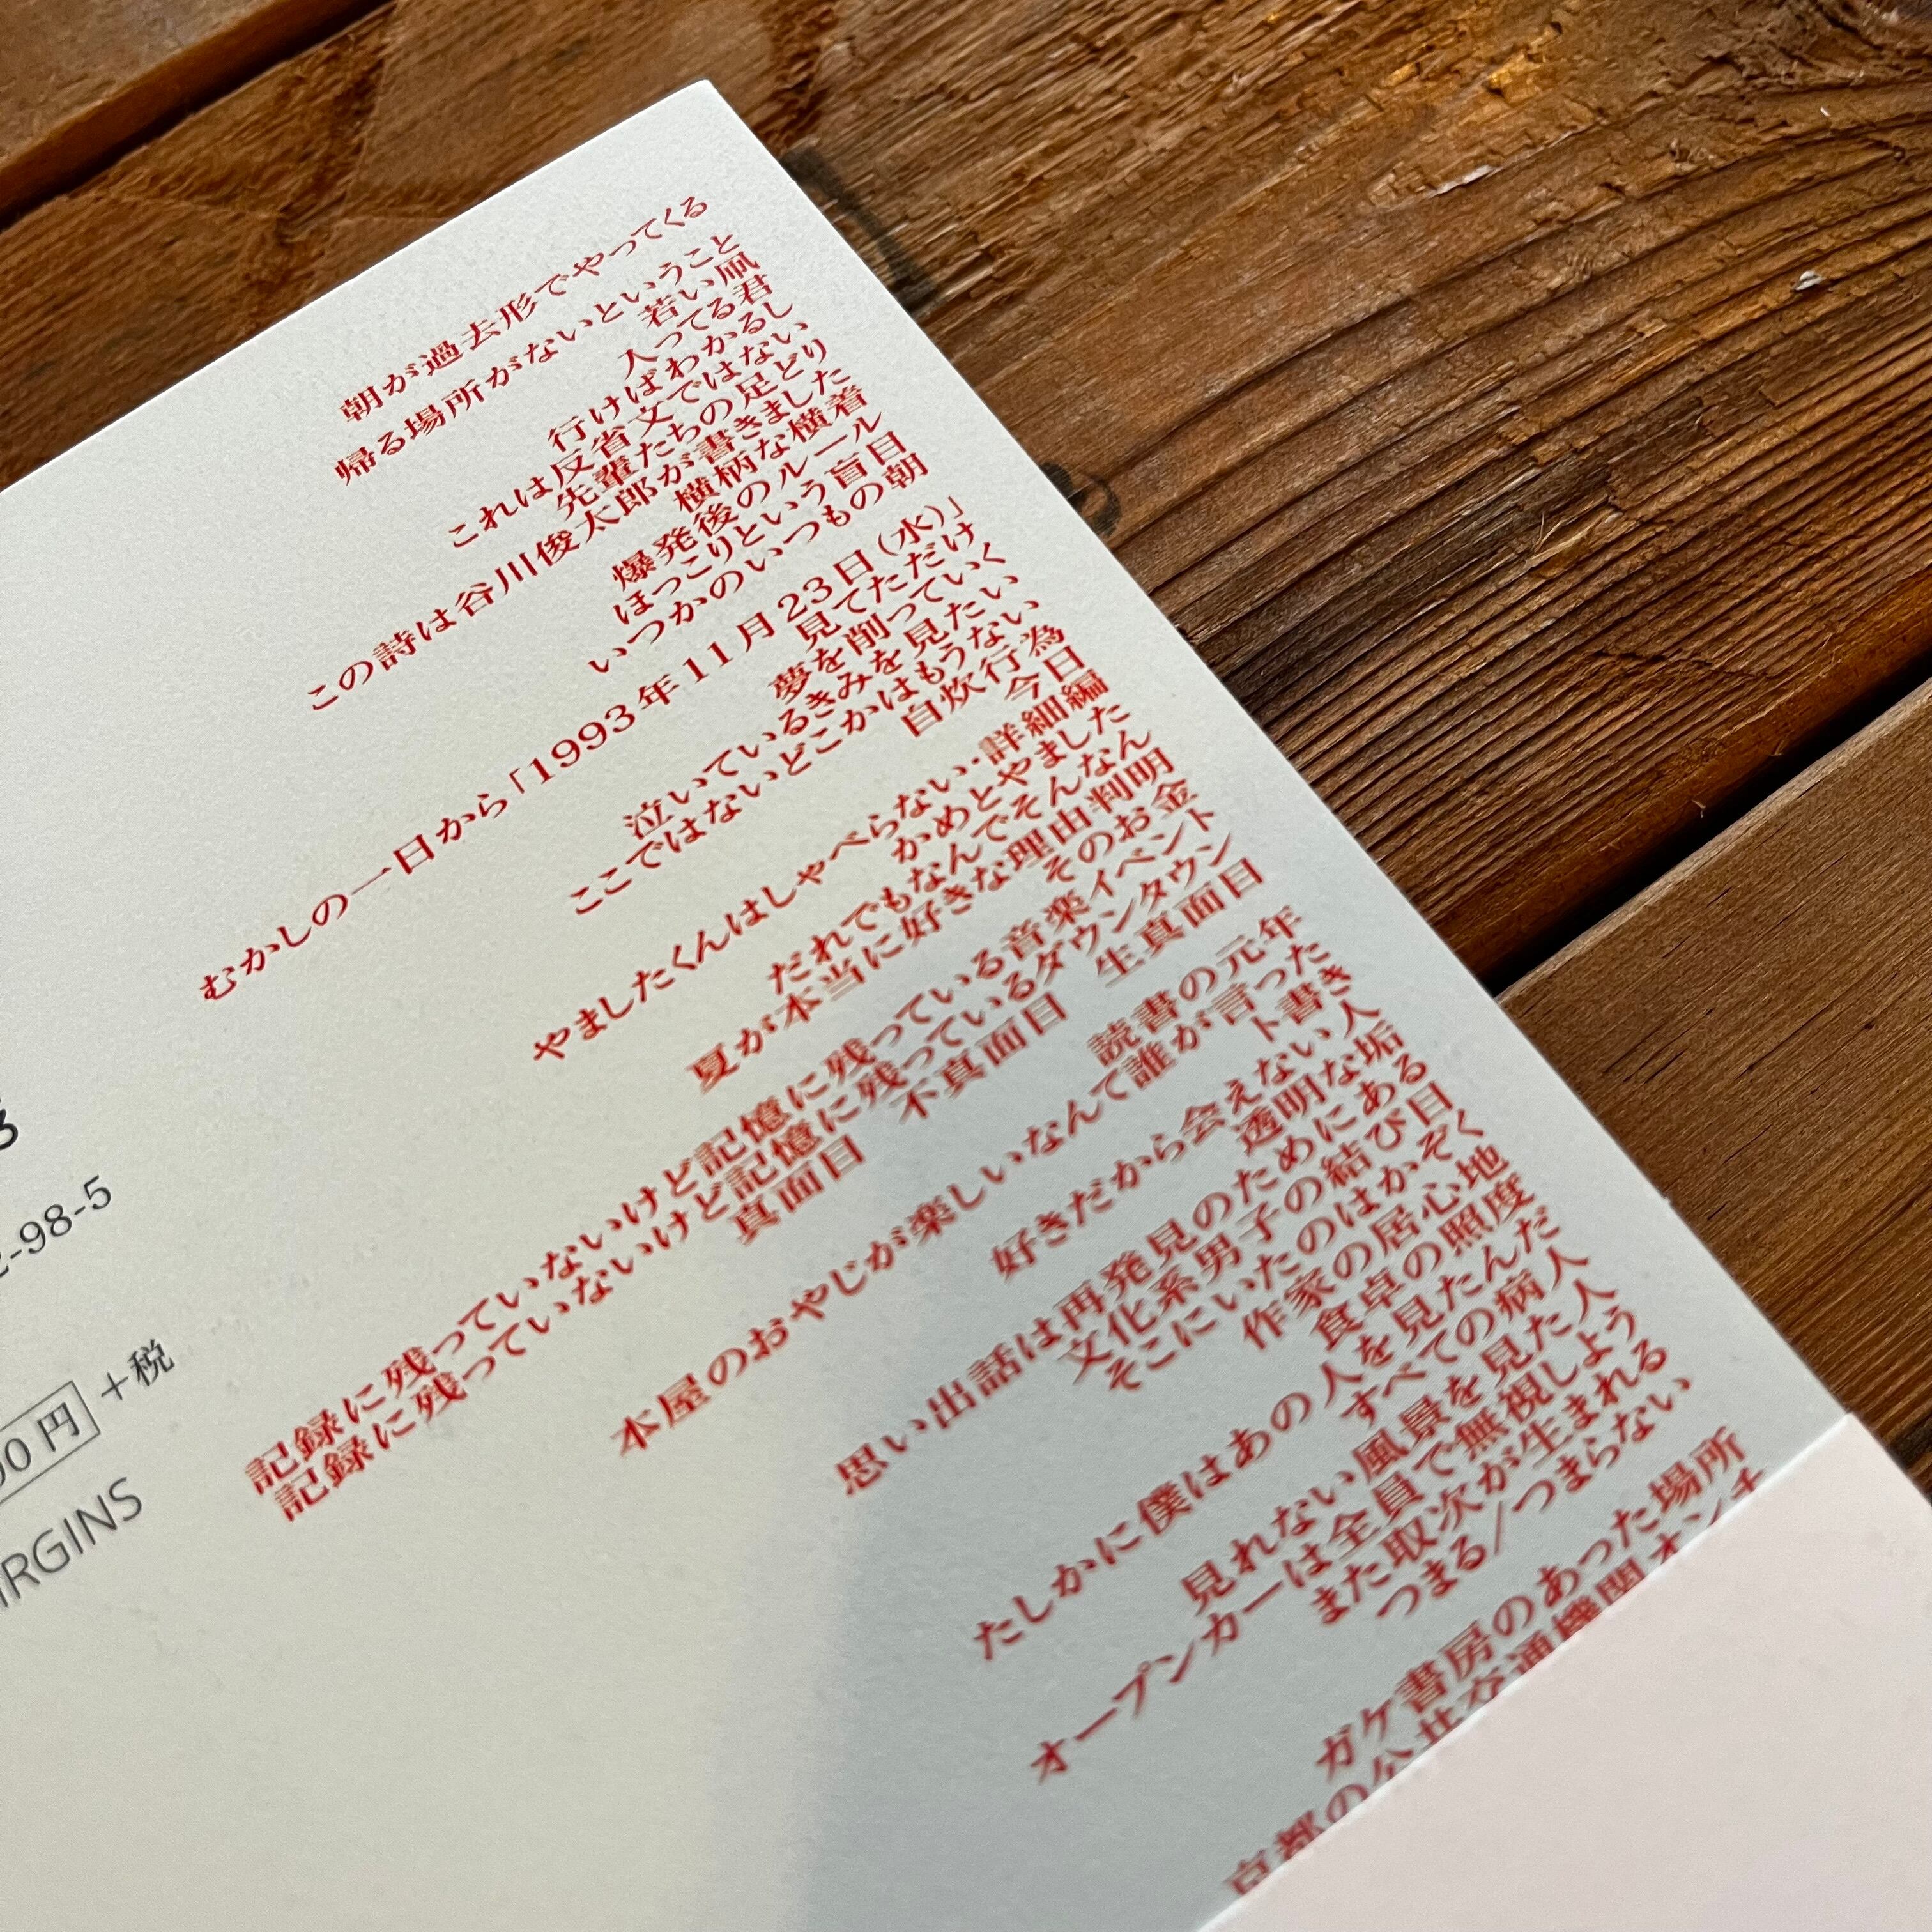 朝が過去形でやってくる
帰る場所がないということ
若い凪
入ってる君
行けばわかるし
これは反省文ではない
先輩たちの足どり
この詩は谷川俊太郎が書きました
横柄な横着
爆発後のルール
ほっこりという盲目
いつかのいつもの朝
むかしの一日から「1993年11月23日(水)」
見てただけ
夢を削っていく
泣いているきみを見たい
ここではないどこかはもうない
自炊行為
今日
やましたくんはしゃべらない・詳細編
かめとやました
だれでもなんでそんなん
夏が本当に好きな理由判明
そのお金
記録に残っていないけど記憶に残っている音楽イベント
記録に残っていないけど記憶に残っているダウンタウン
真面目 不真面目 生真面目
読書の元年
本屋のおやじが楽しいなんて誰が言った
ト書き
好きだから会えない人
透明な垢
思い出話は再発見のためにある
文化系男子の結び目
そこにいたのはかぞく
作家の居心地
食卓の照度
たしかに僕はあの人を見たんだ
すべての病人
見れない風景を見た人
オープンカーは全員で無視しよう
また取次が生まれる
つまる/つまらない
ガケ書房のあった場所
京都の公共交通機関オンチ
-98-5
0円 +税
RGINS